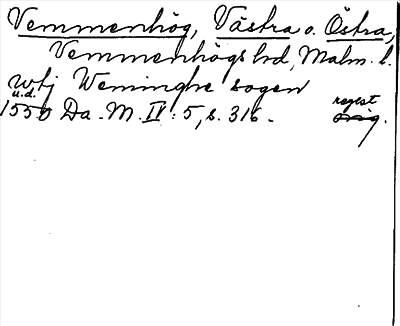 Vemmenhög, Västra o. Östra,
Vemmenhögs hd, Malm. l.
wtj Weminghe sogen
u.d. regest
1550 Da. M. IV: 5, s. 316. orig.